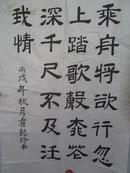 乘舟將欲行忽
上踏歌聲桃花
深千尺不及汪
我情
丙戌年秋月